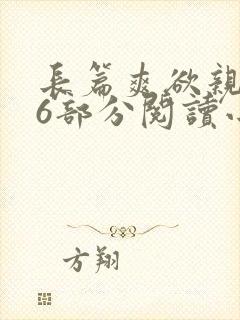 長篇爽欲親
6部分閱讀
方翔